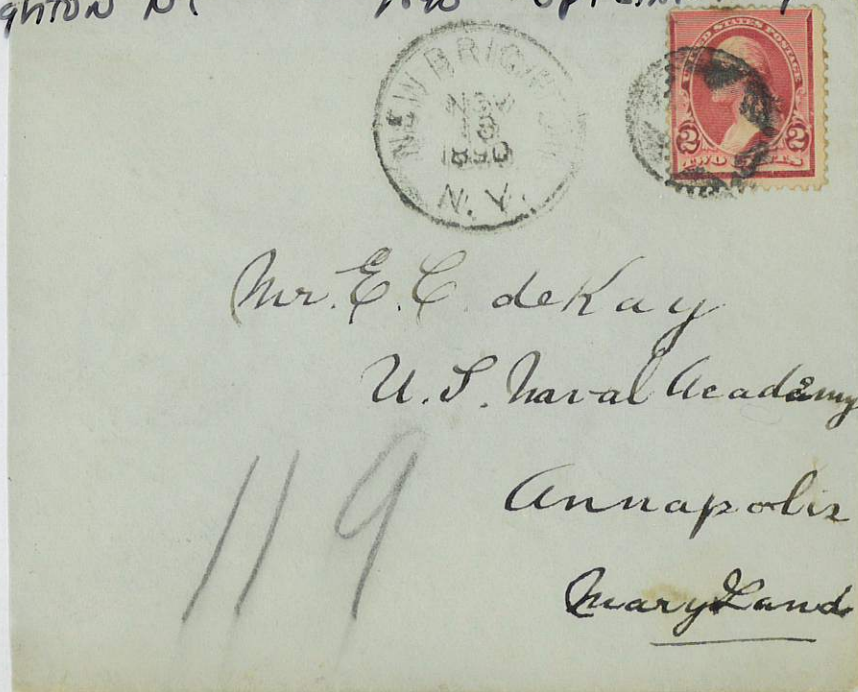 ghton NY 1890
NEW BRIGHTON
NOV
1890
N.Y.
UNITED STATES POSTAGE
2 2
TWO CENTS
Mr. E. C. deKay
U. S. Naval Academy
Annapolis
MaryLand
119